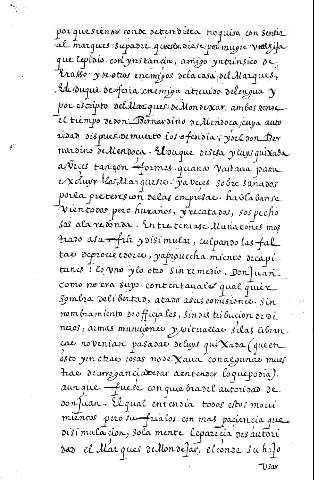 por que siendo conde de tendilla no quiso consentir
al marques su padre que se diese por muger una hija
que le pidio con ynstancia, amigo yntrinsico de
eraso y de otros enemigos de la casa del Marques,
El duque de feria enemigo atreuido de lengua y
por escripto del Marques de Mondexar, ambos
el tiempo de don Bernardino de Mendoça, cuya auto
ridad despues de muerto los ofendia, y el don Ber
nardino de Mendoça. El duque de sesa y luys quixada
a veces tan conformes quanto bastaua para
excluyr los Marqueses. y a veces sobre sanados
por la pretension de las empresas. hablabanse
bien todos pero huraños, y recatados, sospecho
sos a la redonda. Entreteniase Muñatones mos
trado a sufrir y disimular, culpando las fal
tas de proueedores, y aprouechamiento de capi
tanes: lo vno y lo otro sin remedio. Don Juan
como no era suyo contentauale qual quier
sombra de libertad, atado a sus comisiones. sin
nombramiento de officiales, sin distribucion de di
neros, armas municiones y vituallas si las libran
ças no venian pasadas de luys quixada (que en
esto y en otras cosas no dexaua con algunas mues
tras de arrogancia de dar a entender lo que podia).
aunque fuese con quiebra del autoridad de
don Juan. El qual entendia todos estos moui
mientos pero sufrialos con mas paciencia que
disimulacion, sola mente le parecia desautori
dad el Marques de Mondejar, el conde su hijo
vsar